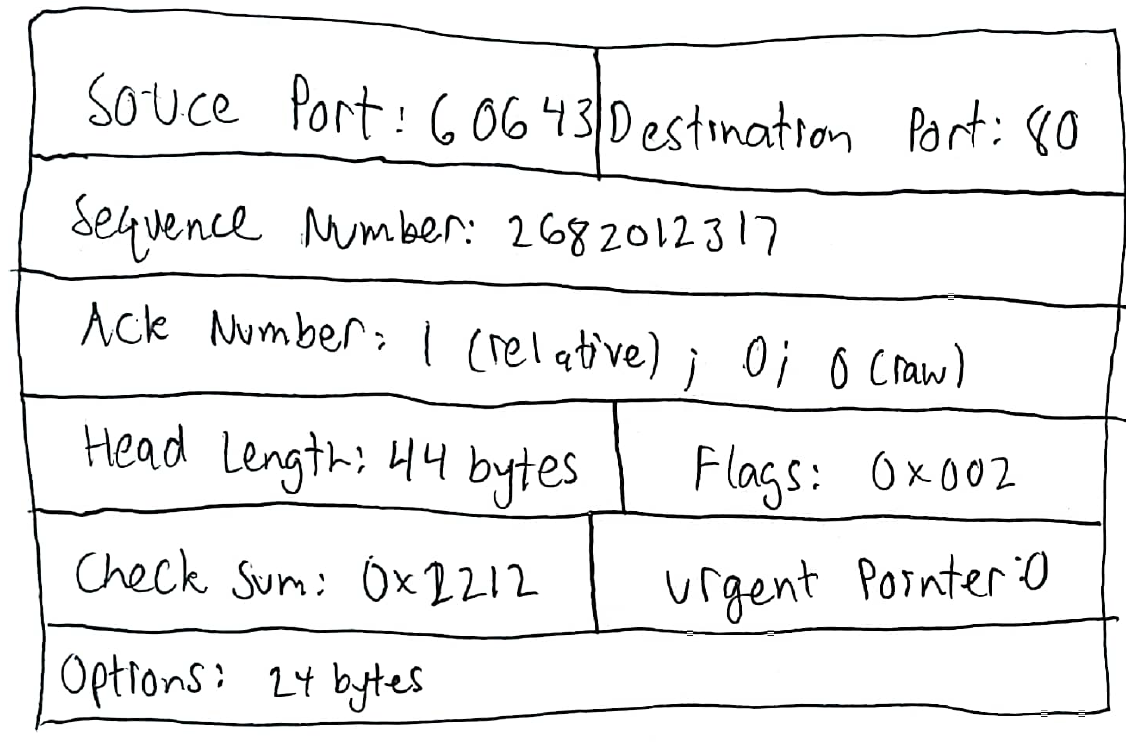 Souce Port: 60643 Destination Port: 80
Sequence Number: 2682012317
Ack Number: 1 (relative); 0; 0 (raw)
Head Length: 44 bytes Flags: 0x002
Check Sum: 0x2212 Urgent Pointer: 0
Options: 24 bytes